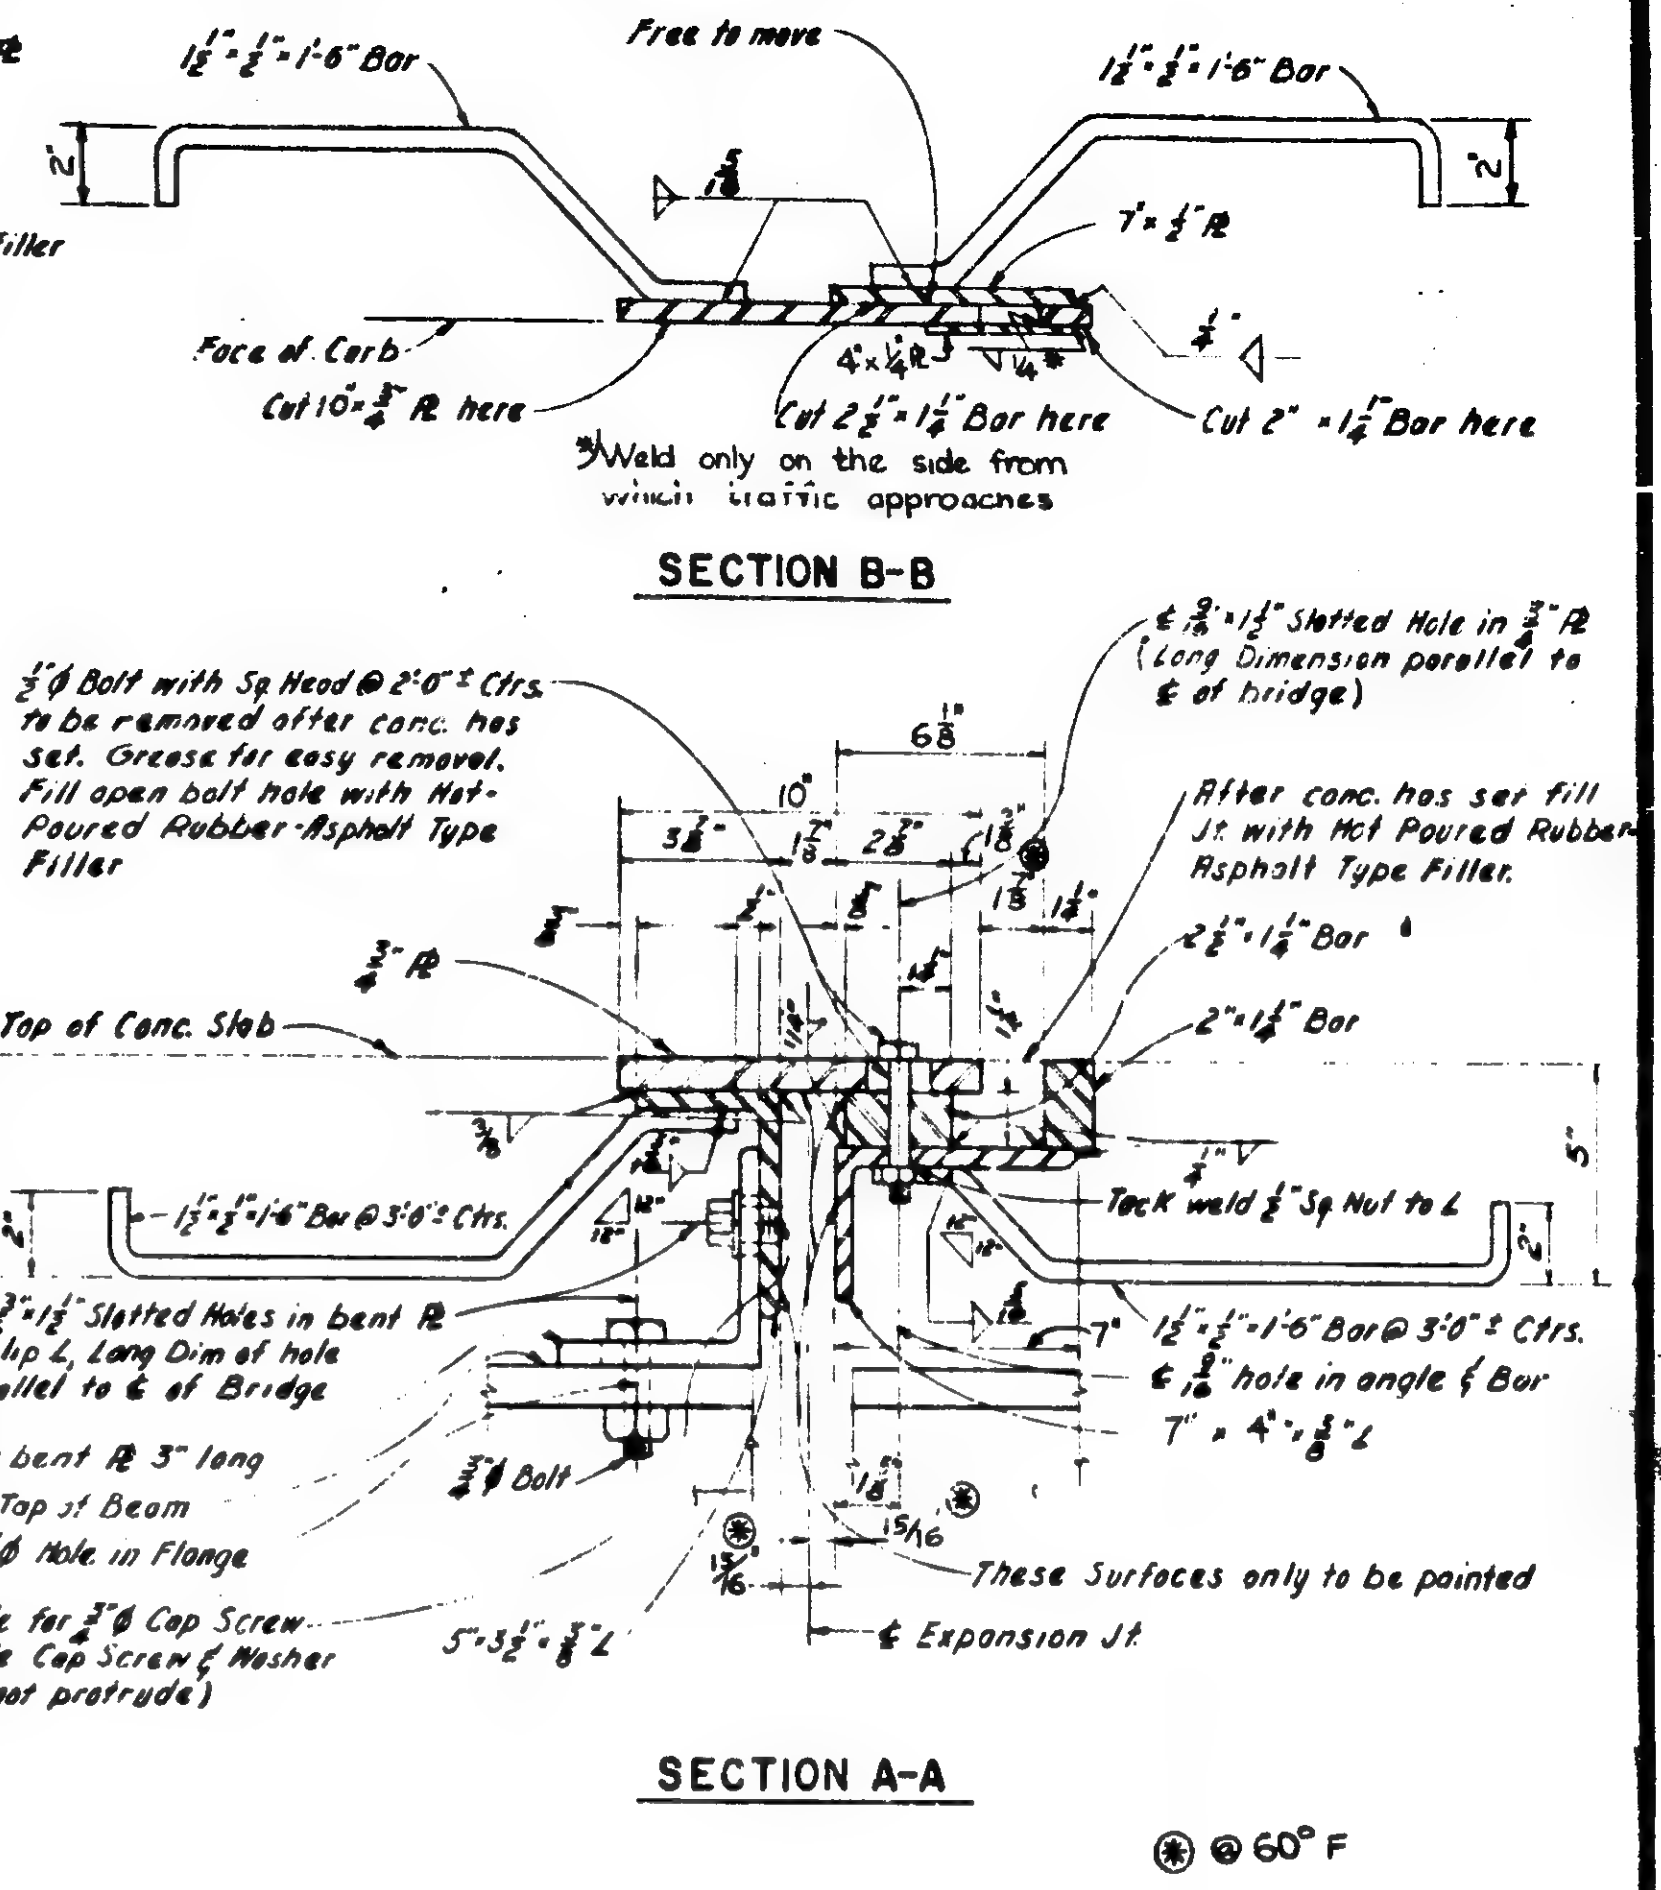 1½" × ½" × 1'-6" Bar
Free to move
1½" × ½" × 1'-6" Bar
2"
2"
7" × ½" ℞
Filler
¼"
Face of Curb
4" × ¼ ℞
¼ *
Cut 10" × ¾" ℞ here
Cut 2½" × 1¼" Bar here
Cut 2" × 1¼" Bar here
*Weld only on the side from
which traffic approaches
SECTION B-B
℄ 9/16" × 1½" Slotted Hole in ¾" ℞
(Long Dimension parallel to
℄ of bridge)
½" φ Bolt with Sq Head @ 2'-0" ± Ctrs.
to be removed after conc. has
set. Grease for easy removal.
Fill open bolt hole with Hot-
Poured Rubber-Asphalt Type
Filler
6⅛"
10"
3⅞"
1⅞"
2⅞"
After conc. has set fill
Jt. with Hot Poured Rubber-
Asphalt Type Filler.
1⅞"
1¼"
2½" × 1¼" Bar
¾" ℞
2" × 1¼" Bar
Top of Conc. Slab
5"
3/8
¼"
Tack weld ½" Sq. Nut to L
2"
1½" × ½" × 1'-6" Bar @ 3'-0" ± Ctrs.
2"
12"
12"
¾" × 1½" Slotted Holes in bent ℞
lip L, Long Dim of hole
allel to ℄ of Bridge
7"
1½" × ½" × 1'-6" Bar @ 3'-0" ± Ctrs.
℄ 9/16" hole in angle & Bar
7" × 4" × ⅜" L
bent ℞ 3" long
Top of Beam
φ Hole in Flange
¾" φ Bolt
1⅝"
15/16 ⊛
⊛
15/16"
These Surfaces only to be painted
e for ¾" φ Cap Screw
e Cap Screw & Washer
not protrude)
5" × 3½" × ⅜" L
℄ Expansion Jt.
SECTION A-A
⊛ @ 60° F